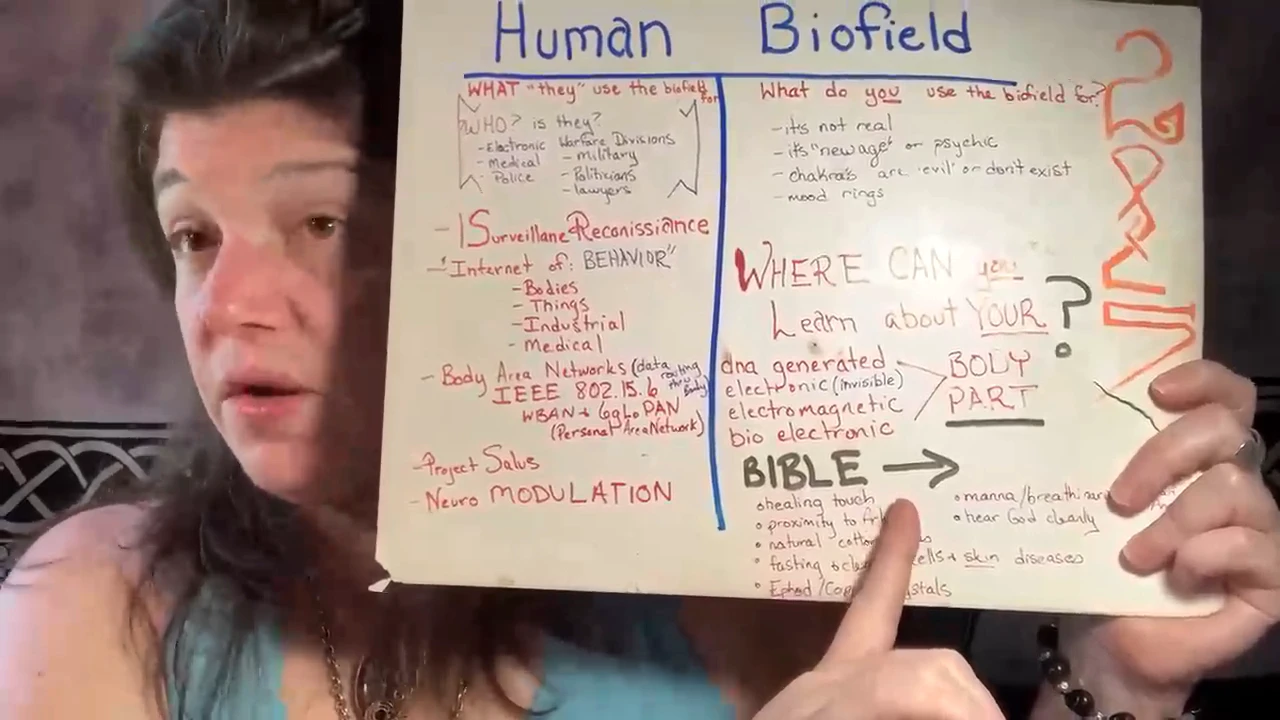 Human Biofield
WHAT "they" use the biofield for
WHO? is they?
- Electronic Warfare Divisions
- Medical - Military
- Police - Politicians
- lawyers
- Surveillane Reconissiance
- "Internet of: BEHAVIOR"
- Bodies
- Things
- Industrial
- Medical
- Body Area Networks (data routing thru Body)
IEEE 802.15.6
WBAN + 6gLoPAN
(Personal Area Network)
- Project Salus
- Neuro MODULATION
What do you use the biofield for?
- it's not real
- it's "new age" or psychic
- chakra's are 'evil' or don't exist
- mood rings
WHERE CAN you
Learn about YOUR ?
dna generated
electronic (invisible)
electromagnetic
bio electronic
BODY
PART
BIBLE →
• healing touch
• proximity to
• natural
• fasting + cells + skin diseases
• Ephod /
• manna/
• hear God cleanly